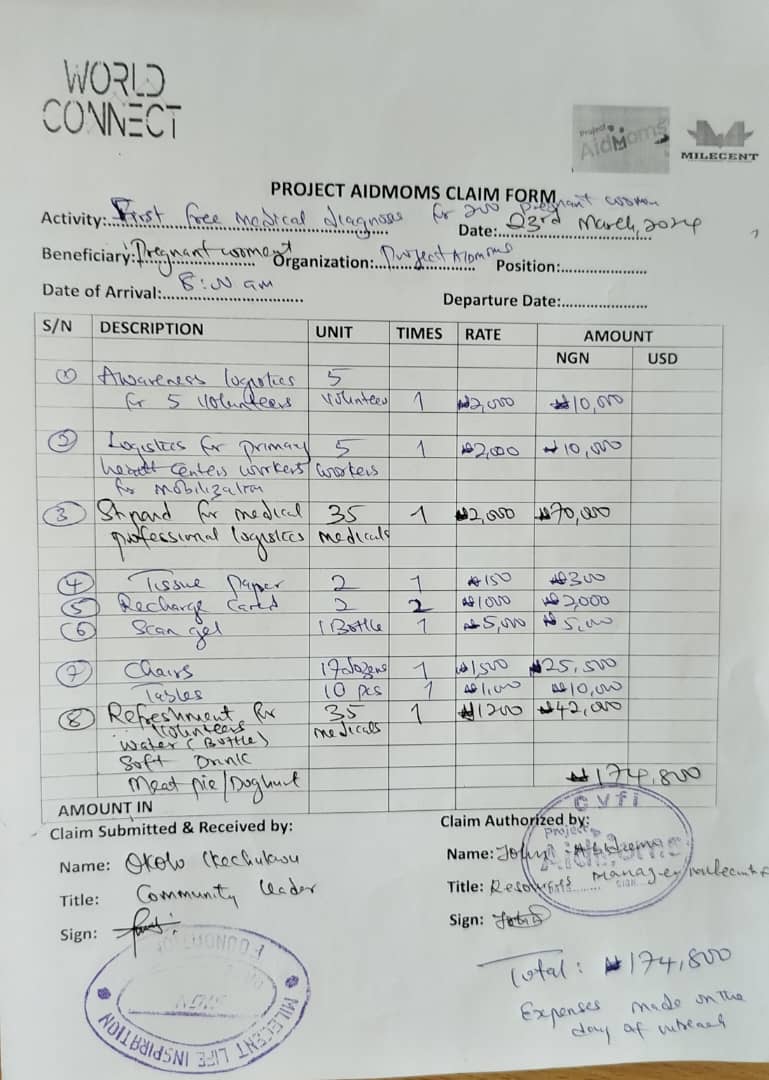 WORLD
CONNECT
Project
AidMoms
MILECENT
PROJECT AIDMOMS CLAIM FORM
Activity: First free medical diagnoses for 200 pregnant women
Date: 23rd March, 2024
Beneficiary: Pregnant women Organization: Project AidMoms Position:
Date of Arrival: 8:00 am Departure Date:
S/N DESCRIPTION UNIT TIMES RATE AMOUNT
NGN USD
(1) Awareness logistics 5
for 5 volunteers volunteers 1 ₦2,000 ₦10,000
(2) Logistics for primary 5 1 ₦2,000 ₦10,000
health centers workers workers
for mobilization
(3) Stipand for medical 35 1 ₦2,000 ₦70,000
professional logistics medicals
(4) Tissue paper 2 1 ₦150 ₦300
(5) Recharge Cared 2 2 ₦1000 ₦2,000
(6) Scan gel 1 Bottle 1 ₦5,000 ₦5,000
(7) Chairs 17 dozens 1 ₦1500 ₦25,500
Tables 10 pcs 1 ₦1,000 ₦10,000
(8) Refreshment for 35 1 ₦1200 ₦42,000
volunteers medicals
water (Bottle)
Soft Drink
Meat pie/Doghnut
₦174,800
AMOUNT IN
Claim Submitted & Received by: Claim Authorized by:
Name: Okolo Ikechukwu Name: John
Title: Community leader Title: Resources manager
Sign: Sign:
CYFI
Project
AidMoms
SIGN
MILECENT LIFE INSPIRATION
FOUNDATION
Total: ₦174,800
Expenses made on the
day of outreach